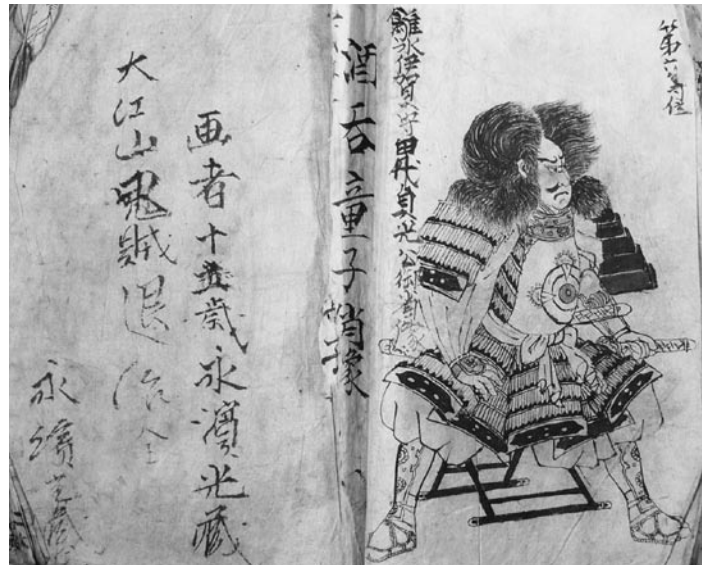 第六
氷伊賀守貞光公御肖像
酒呑童子肖像
画者十五歳永濱光蔵
大江山鬼賊退治
永濱